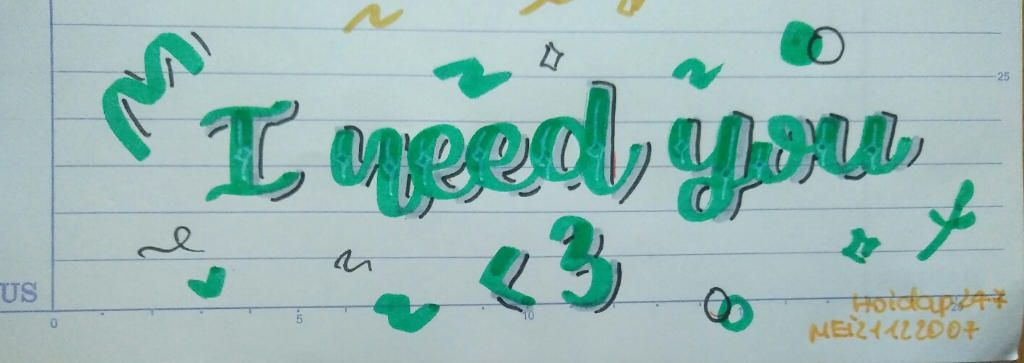 25
I need you
<3
US
0 5 10
Hoidap247
MEi21122007